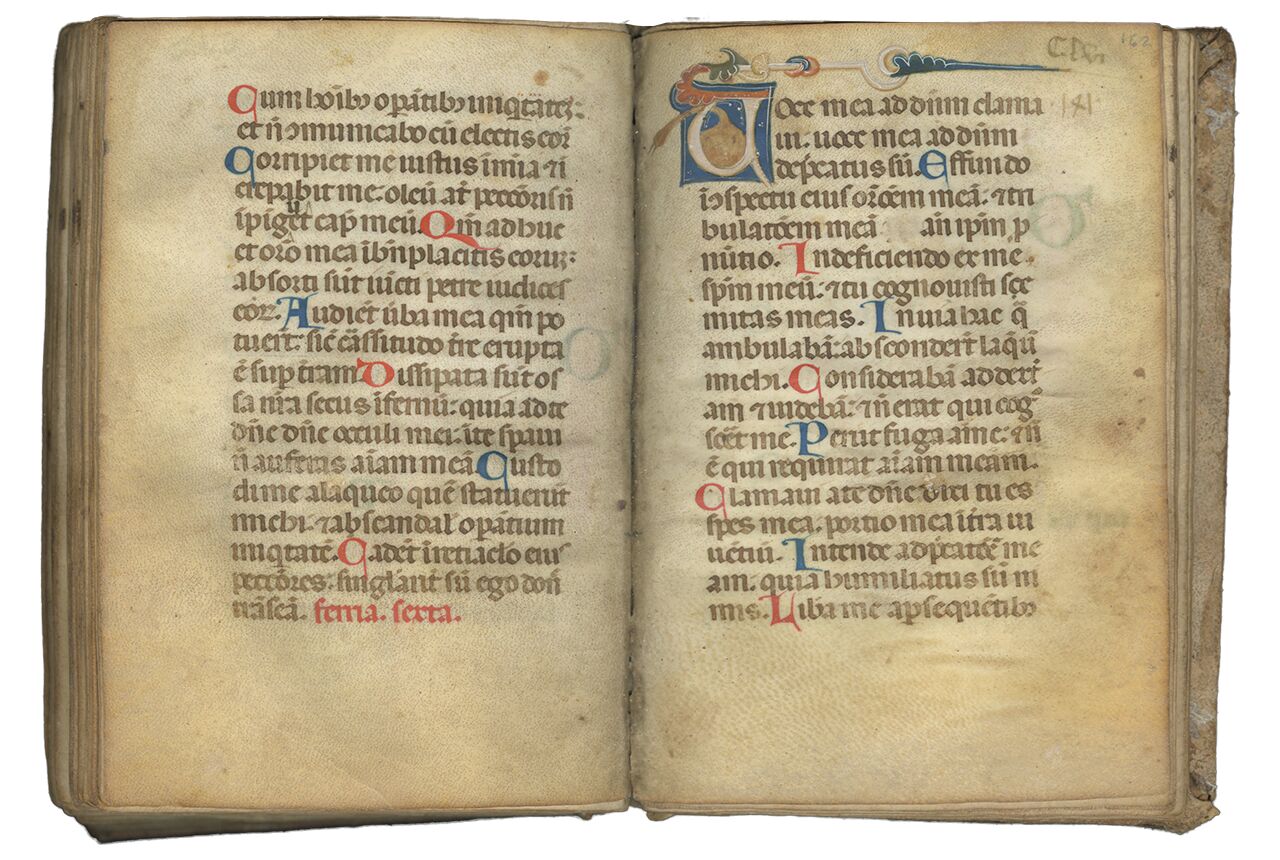 Cum hoı̄ıbꝫ oꝑātibꝫ iniq̄tateꝫ:
et ñ ɔmunicabo cū electis eoꝝ
Corripiet me iustus ī mı̄a ⁊ i
crepabit me. oleū aūt peccoris ñ
īpinguet cap̄ meū. Qm̄ adhuc
et orō mea ī bn̄placitis eoruꝫ:
absorti sūt iūcti petre iudices
eoꝝ. Audiēt ūba mea qm̄ po
tuerūt: sic̄ cᵃssitudo t̄re erupta
ē suꝑ t̄ram Dissipata sūt os
sa nr̄a secus īfernū: quia ad te
dn̄e dn̄e occuli mei: ī te sꝑaui
ñ auferas aı̄am meā. Custo
di me a laqueo quē statuerūt
michi. ⁊ ab scandal' oꝑātium
iniq̄tatē. Cadēt ī retiaclo eius
peccōres: singlarit̄ sū ego don̄
trāseā. feria. sexta.
162
CLVI
Uoce mea ad dn̄m clama 141
ui. uoce mea ad dn̄m
dep̄catus sū. Effundo
ī ɔspectu eius or̄oēm meā. ⁊ tri
bulatōem meā an̄ ip̄m ꝓ
nūtio. In deficiendo ex me
sp̄m meū. ⁊ tu cognouisti sēe
mitas meas. In uia hac q̄
ambulabā: absconderūt laq̄ū
michi. Considerabā ad dexī
am ⁊ uidebā: ⁊ ñ erat qui cog̃
scēt me. Periit fuga a me: ⁊ ñ
ē qui requirat aı̄am meam.
Clamaui a te dn̄e dixi tu es
spes mea. portio mea ī t̄ra ui
uētiū. Intende ad p̄catōēꝫ me
am. quia humiliatus sū ni
mis. Lib̄a me a ꝑsequētibꝫ